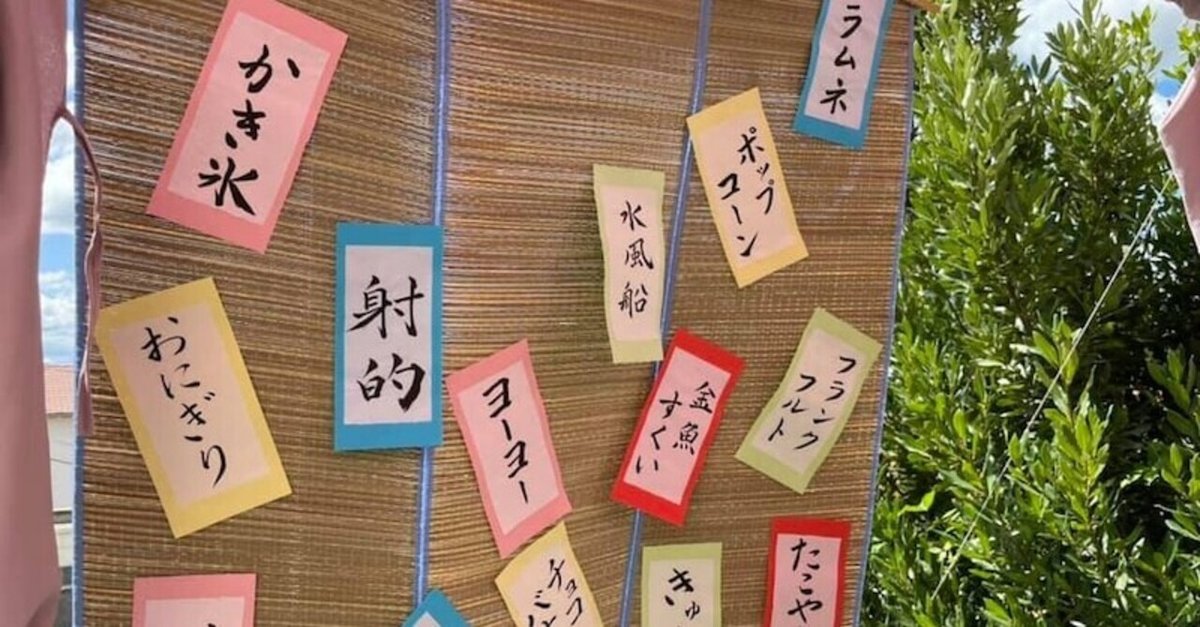 かき氷
ラムネ
ポップ
コーン
水風船
射的
おにぎり
ヨーヨー
金魚
すくい
フランク
フルト
チョコ
きゅ
たこや